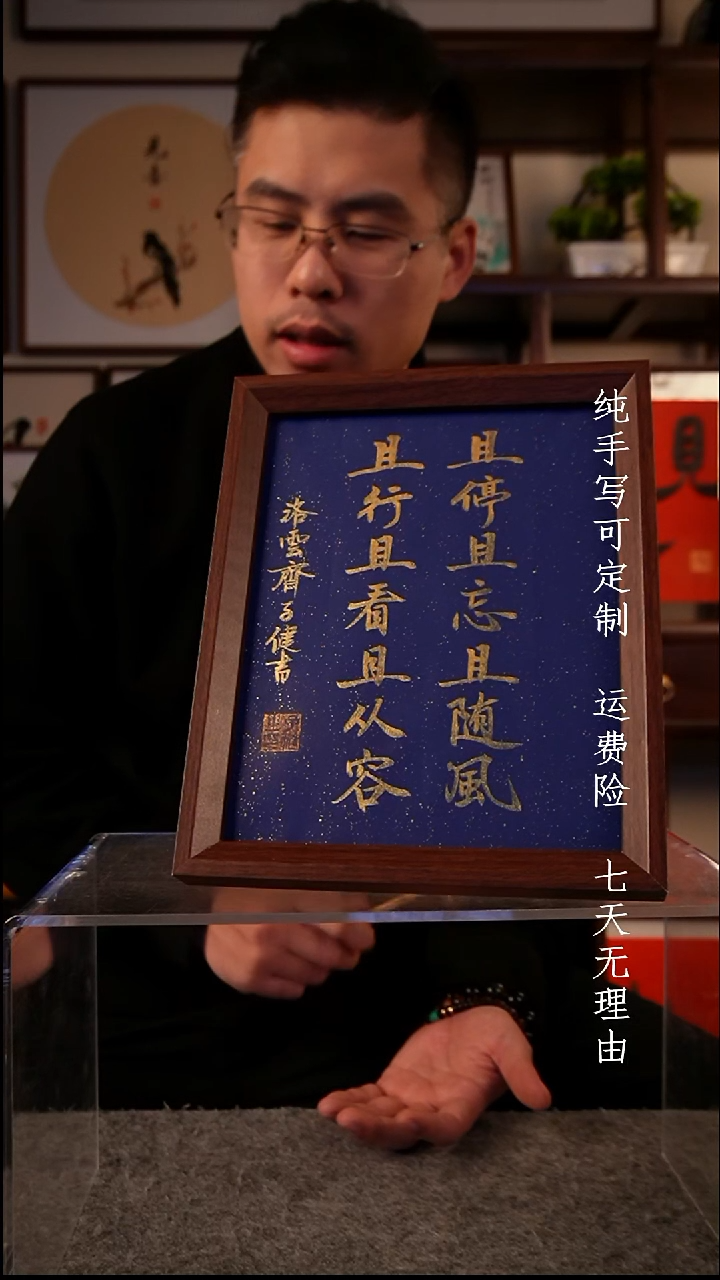 且停且忘且随風
且行且看且从容
洛雲齋子健書
纯手写可定制 运费险 七天无理由